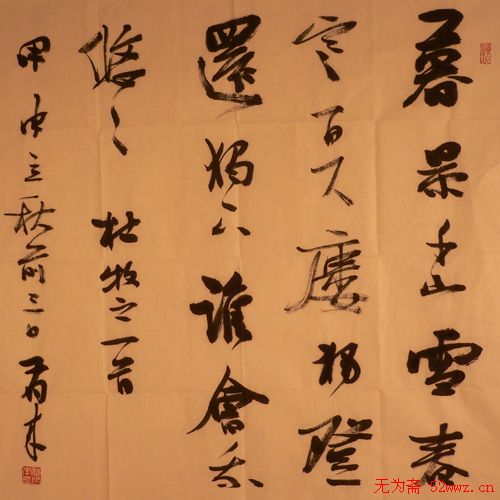 暮景千山雪春
寒百尺樓独登
還獨下誰會我
悠々 杜牧之一首
甲申立秋前三日
无为斋 52wwz.cn